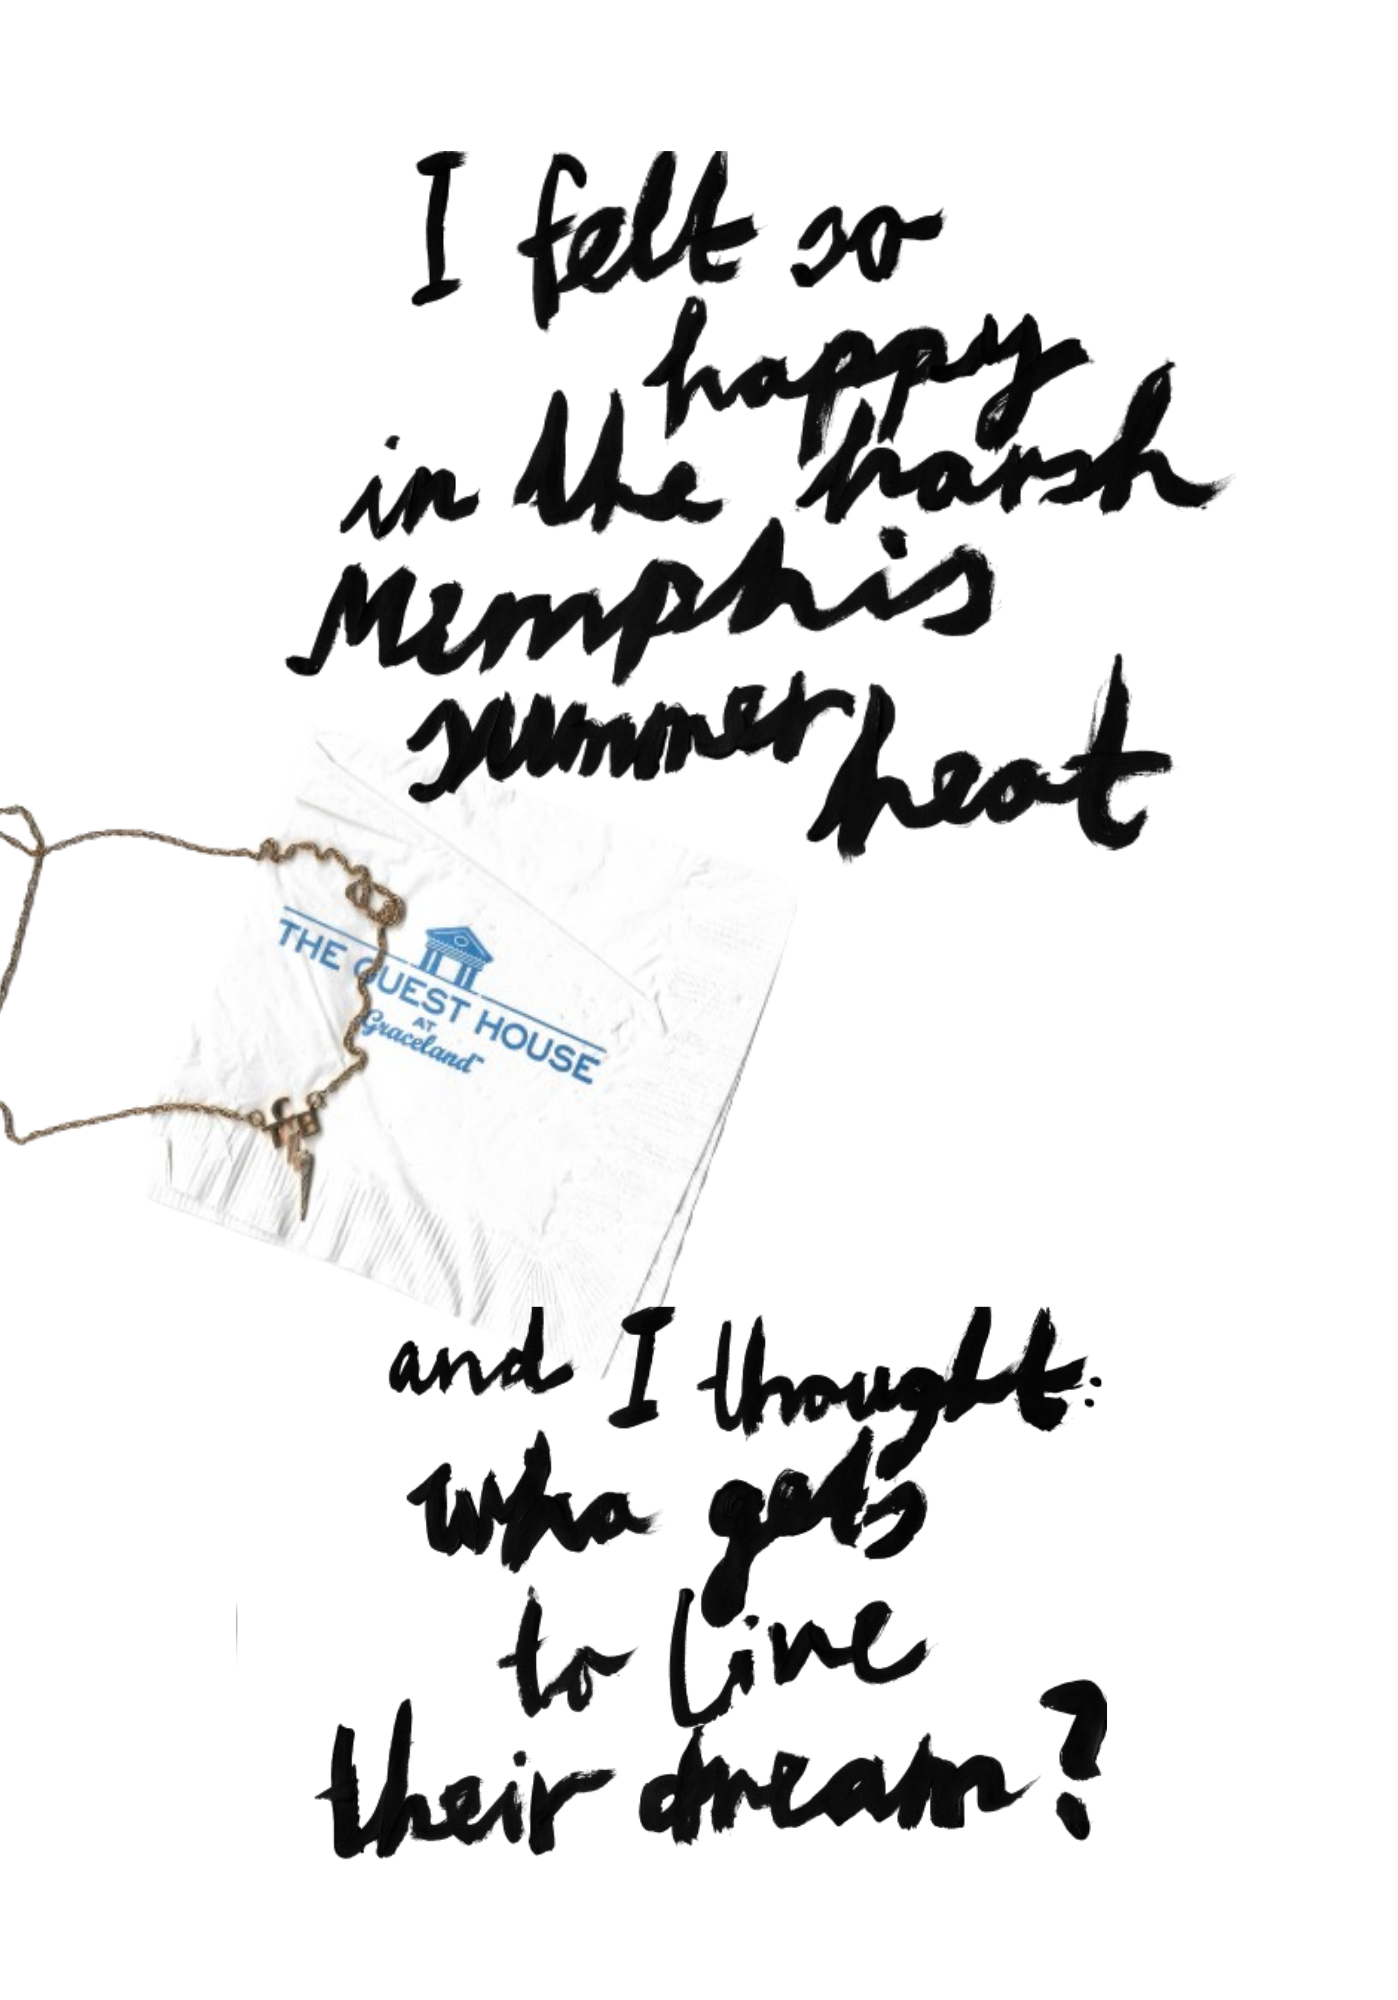 I felt so
happy
in the harsh
Memphis
summer heat
THE GUEST HOUSE
AT
Graceland™
TCB
and I thought:
who gets
to live
their dream?